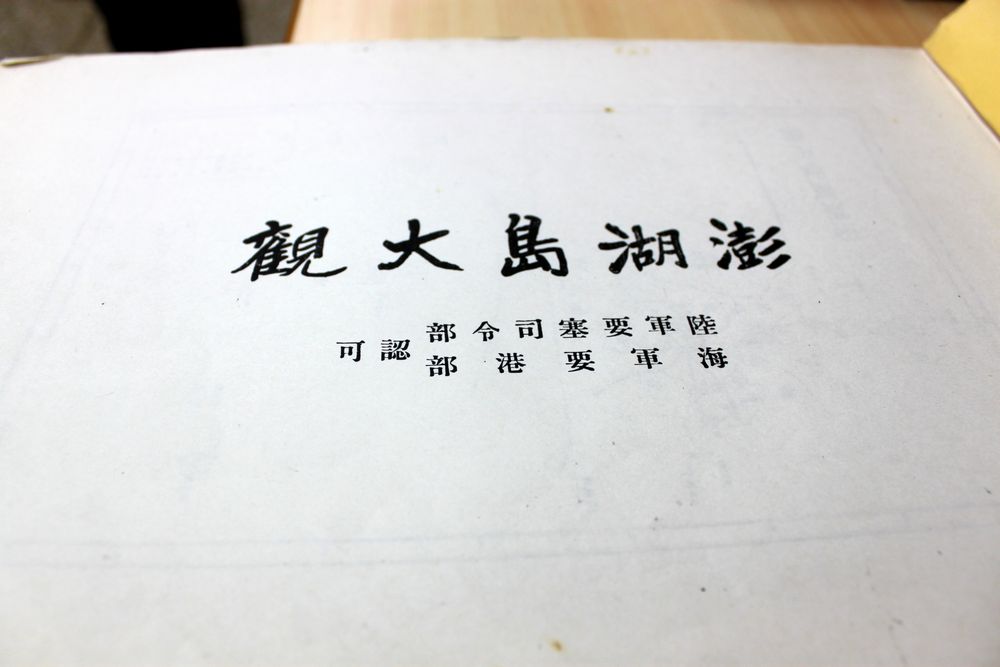 澎湖島大觀
陸軍要塞司令部
海軍要港部
認可